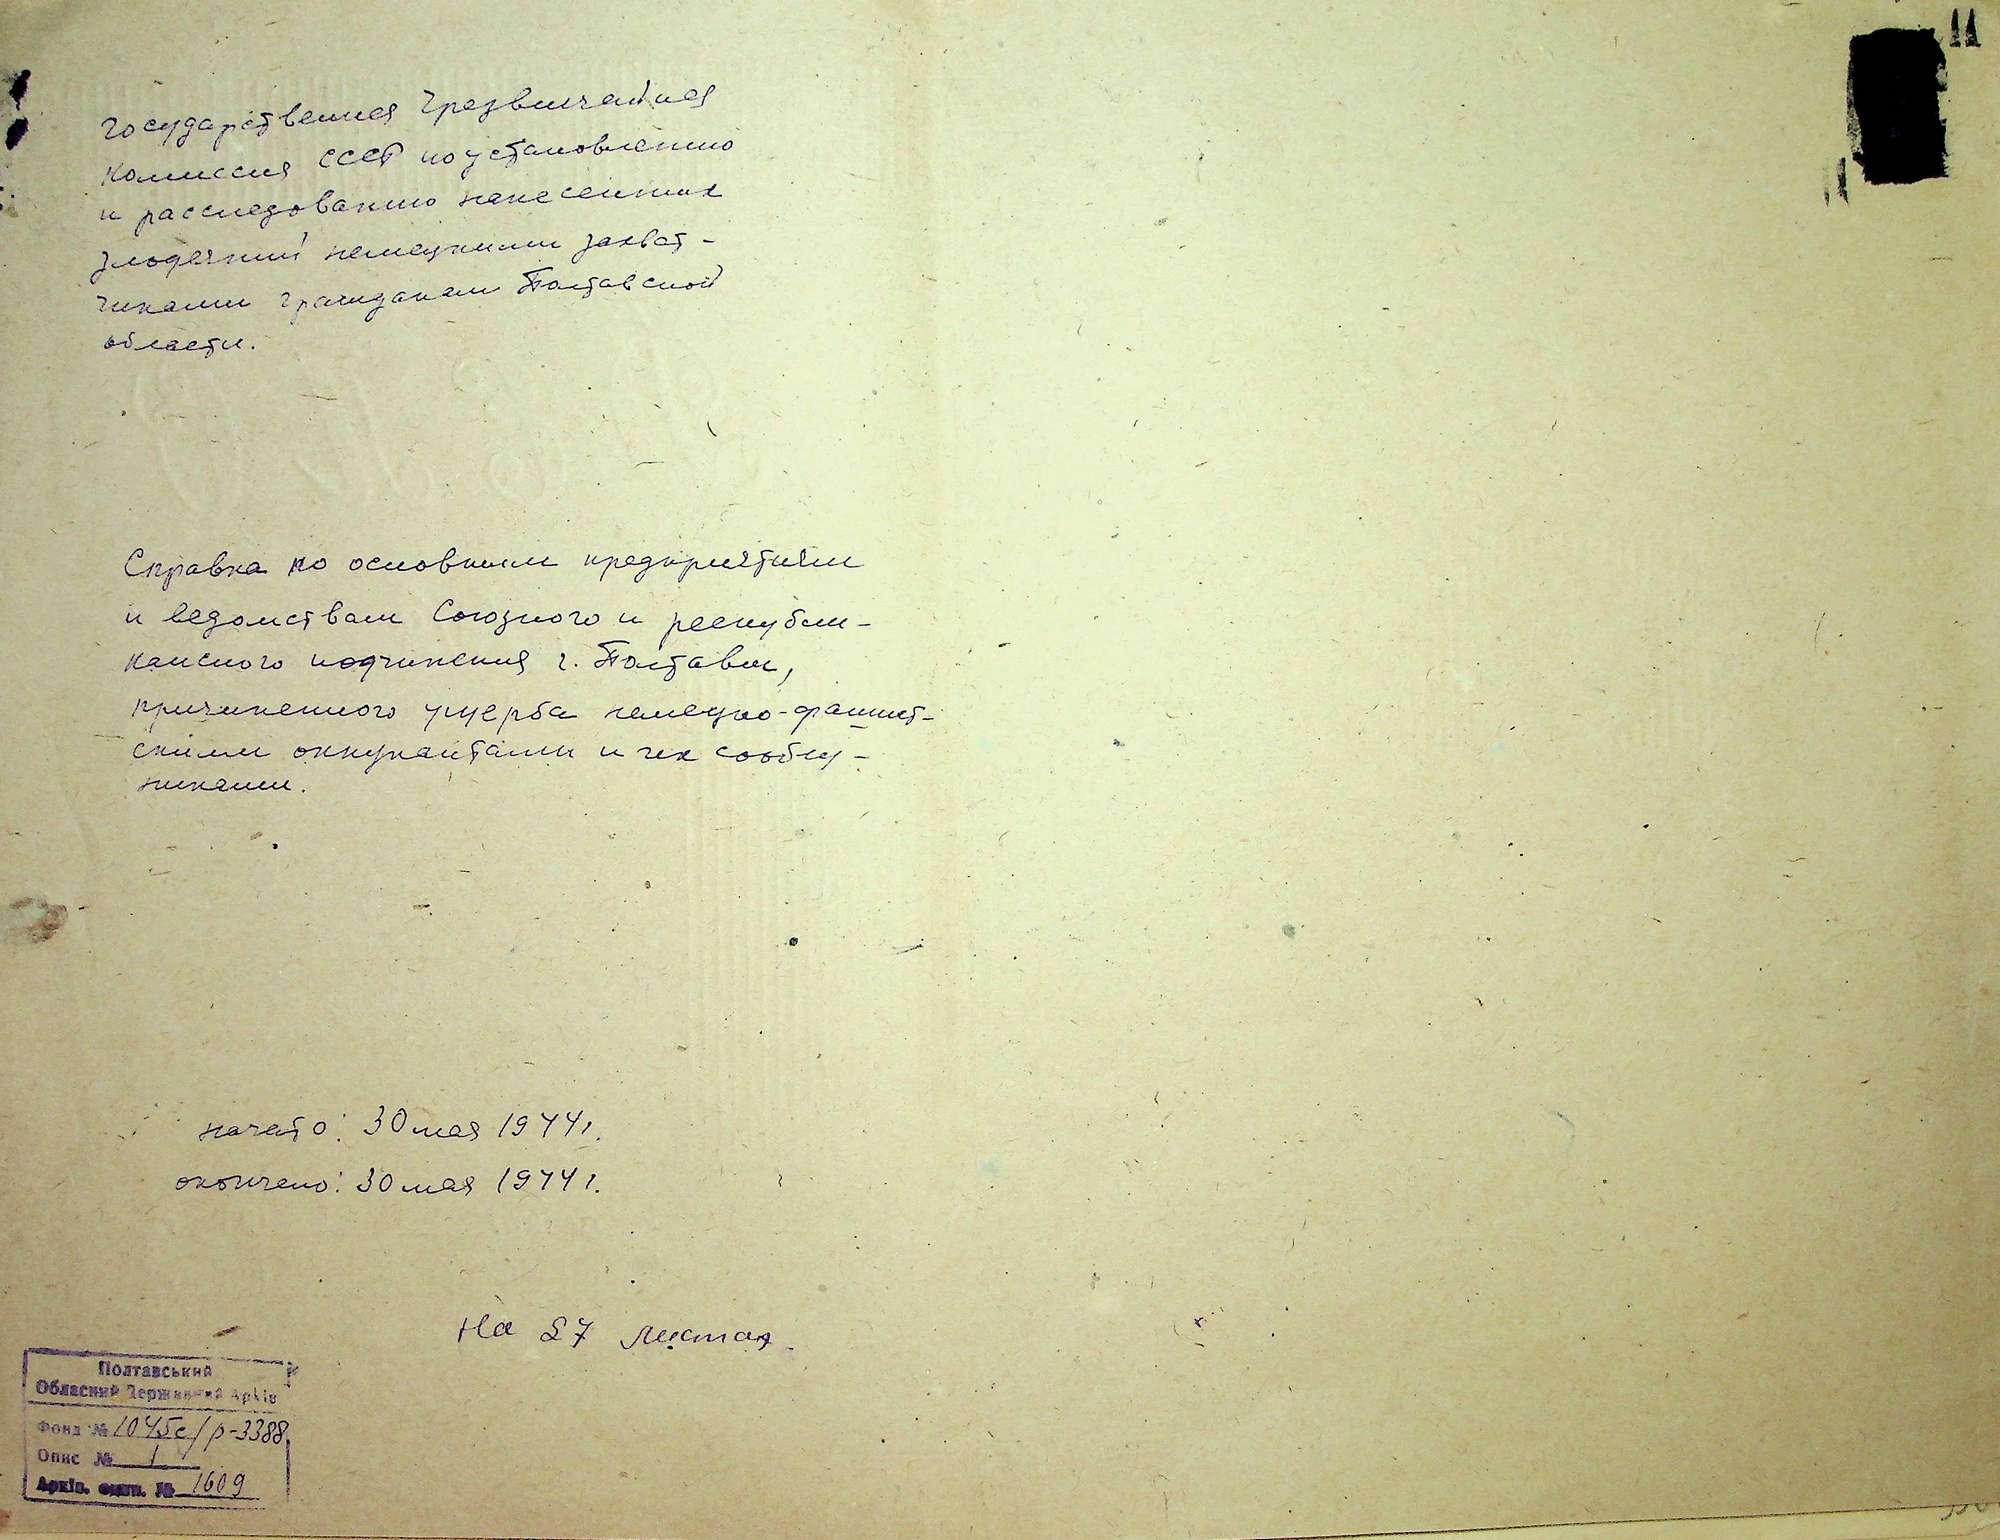 11
Государственная Чрезвычайная
Комиссия СССР по установлению
и расследованию нанесенных
злодеяний немецкими захват-
чиками гражданам Полтавской
области.
Справка по основным предприятиям
и ведомствам Союзного и республи-
канского подчинения г. Полтавы,
причиненного ущерба немецко-фашист-
скими оккупантами и их сообщ-
никами.
начато: 30 мая 1944 г.
окончено: 30 мая 1944 г.
На 27 листах.
Полтавський
Обласний Державний Архів
Фонд № 1045с/р-3388
Опис № 1
Архів. один. № 1609